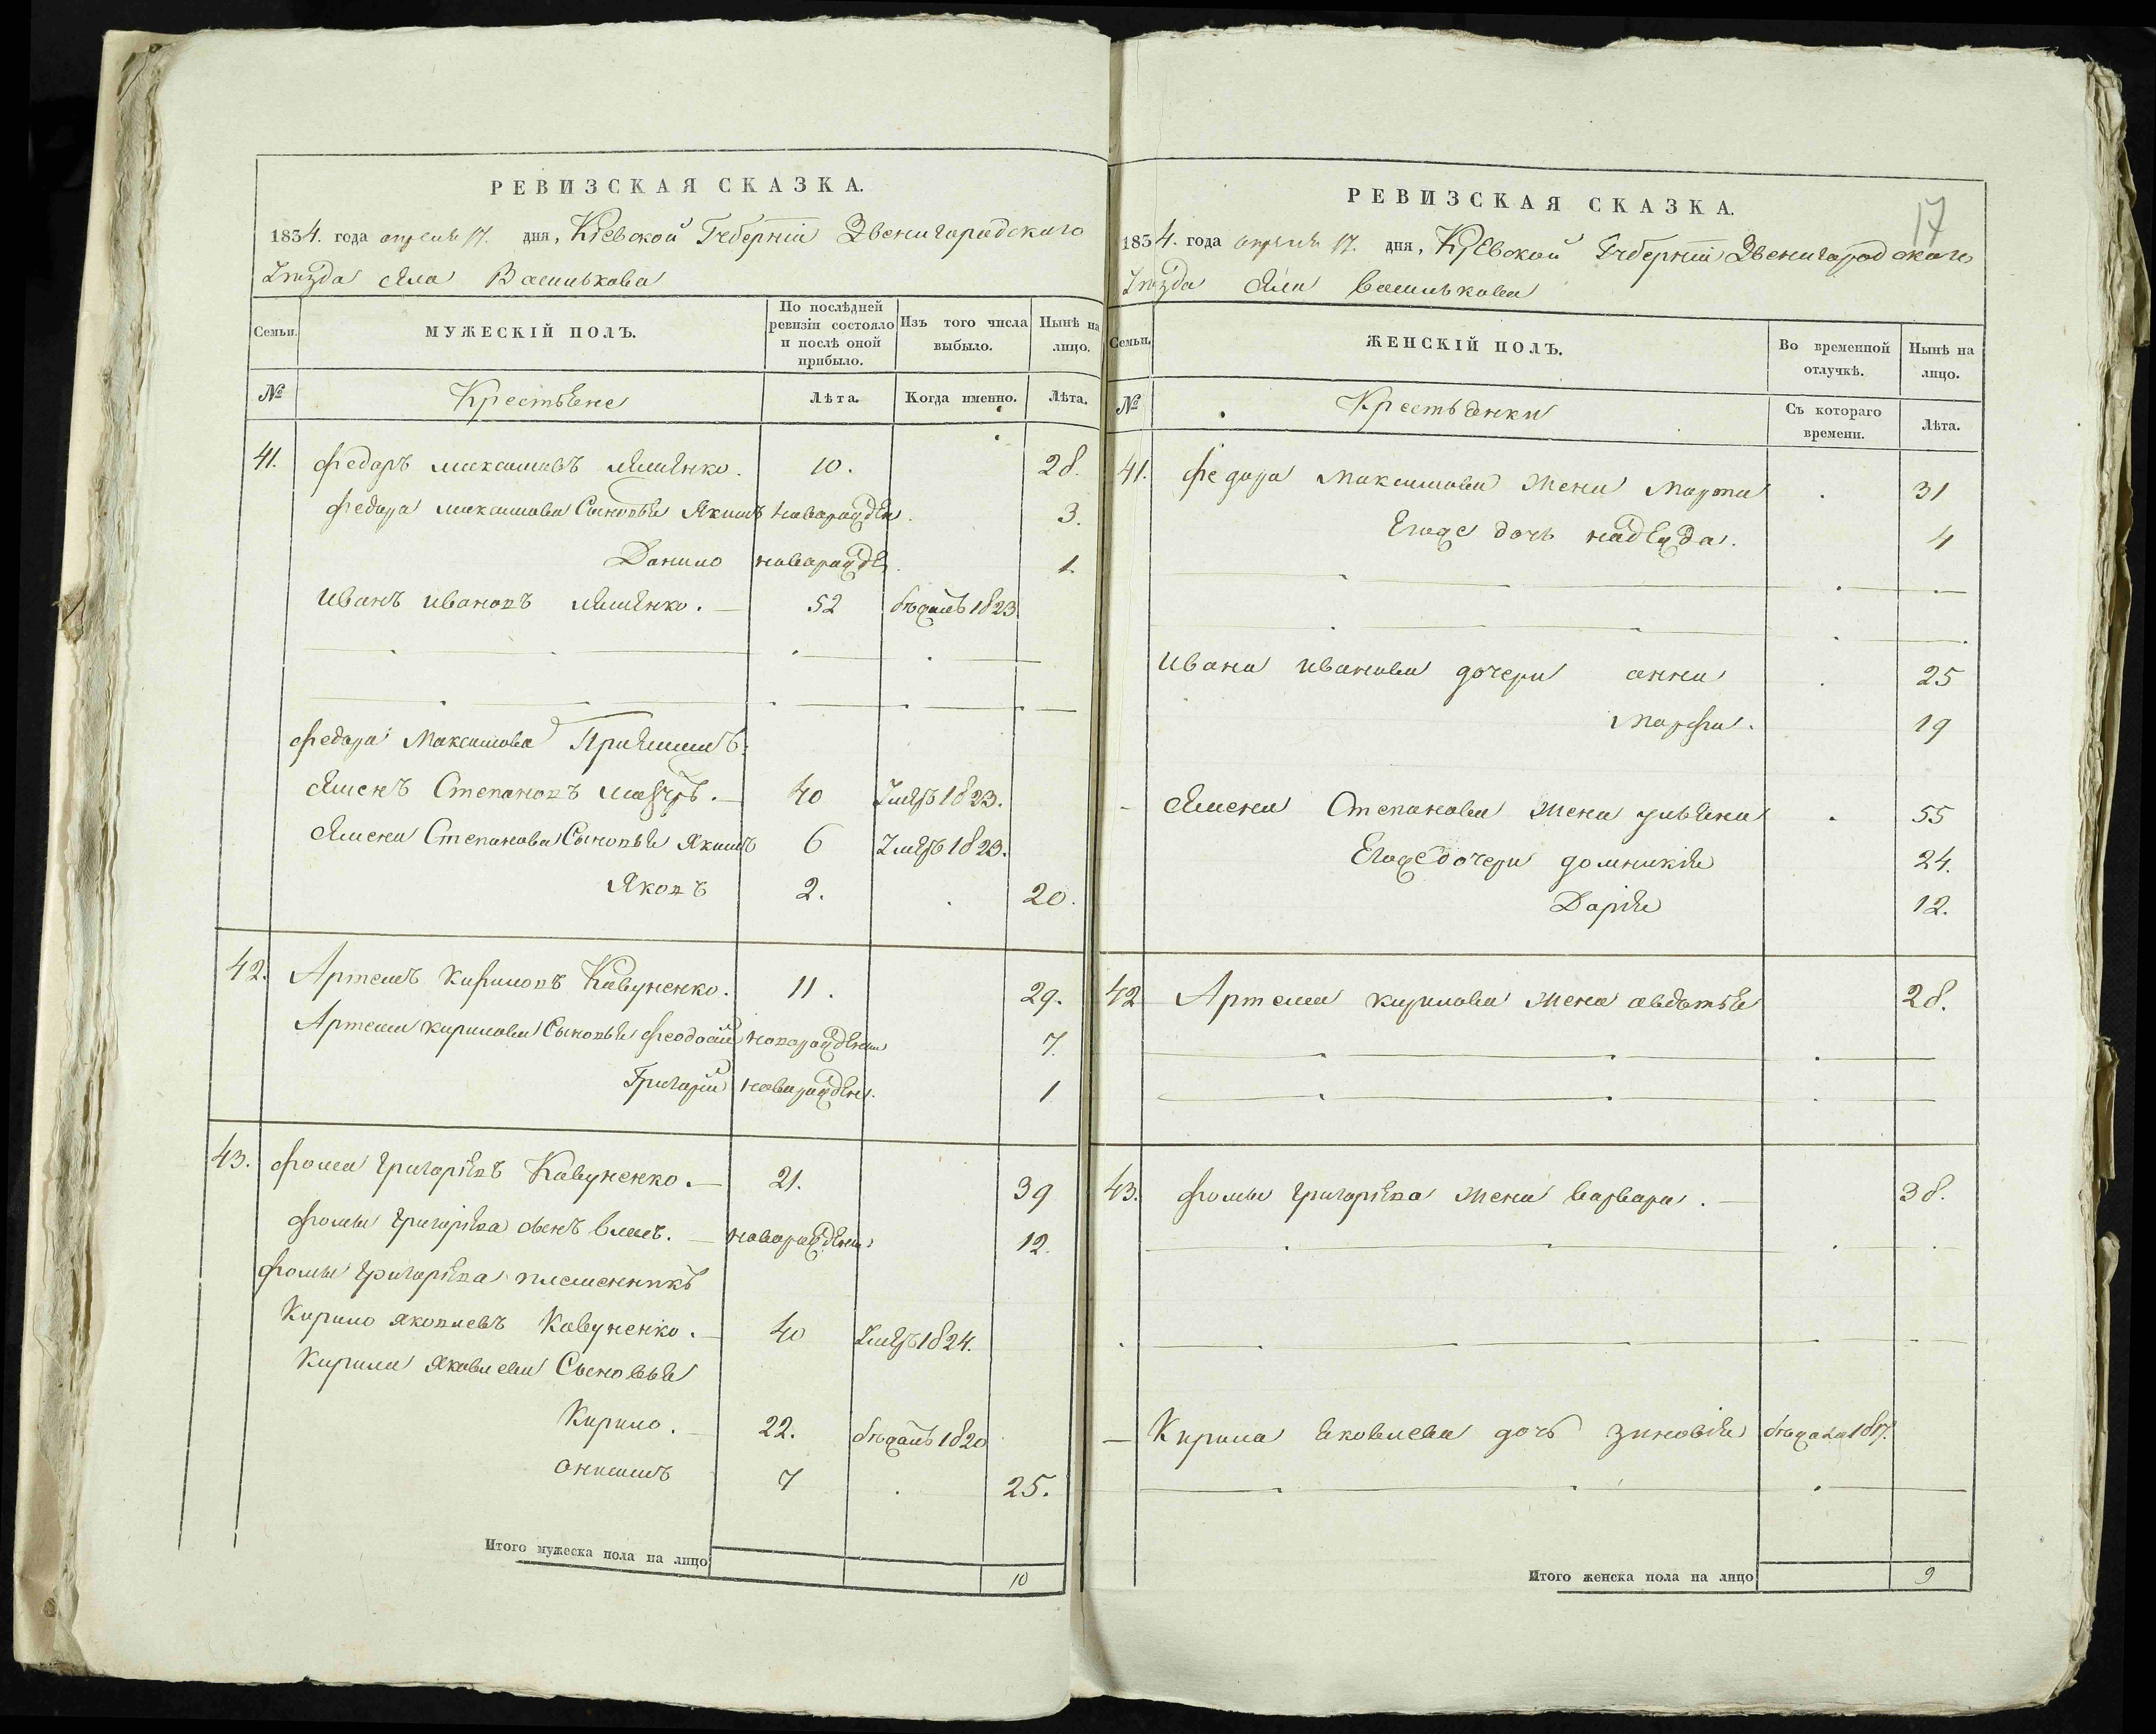 РЕВИЗСКАЯ СКАЗКА.
1834. года апреля 17. дня, Кіевской Губерніи Звенигородского
Уезда села Василькова
Семьи.
МУЖЕСКІЙ ПОЛЪ.
По послѣдней ревизіи состояло и послѣ оной прибыло.
Изъ того числа выбыло.
Нынѣ на лицо.
№
Крестьяне
Лѣта.
Когда именно.
Лѣта.
41. Федоръ Максимовъ 10. 28.
Федора Максимова Сыновья Якимъ новорожден. 3.
Данило новорожде. 1.
Иванъ Ивановъ 52 бежалъ 1823.
Федора Максимова
Семенъ Степановъ 40 Умеръ 1823.
Семена Степанова Сыновья Якимъ 6 Умеръ 1823.
Яковъ 2. 20.
42. Артемъ Кириловъ Кавуненко. 11. 29.
Артема Кирилова Сыновья Феодосій новорожденъ 7.
Григорій новорожден. 1
43. Фома Григоріевъ Кавуненко. 21. 39
Фомы Григоріева сынъ новорожденъ 12.
Фомы Григоріева племенникъ
Кирило Яковлевъ Кавуненко. 40 Умеръ 1824.
Кирила Яковлева Сыновья
Кирило. 22. бежалъ 1820
Онисимъ 7 25.
Итого мужеска пола на лицо 10
17
РЕВИЗСКАЯ СКАЗКА.
1834. года апреля 17. дня, Кіевской Губерніи Звенигородского
Уезда села Василькова
Семьи.
ЖЕНСКІЙ ПОЛЪ.
Во временной отлучкѣ.
Нынѣ на лицо.
№
Крестьянки
Съ котораго времени.
Лѣта.
41. Федора Максимова Жена Марта 31
Егоже дочь надежда. 4
Ивана Иванова дочери анна 25
Марфа. 19
Семена Степанова Жена ульяна 55
Егоже дочери домникія 24.
Дарія 12.
42 Артема Кирилова Жена авдотья 28.
43. Фомы Григоріева Жена варвара. 38.
Кирила Яковлева дочь зиновія бежала 1817.
Итого женска пола на лицо 9